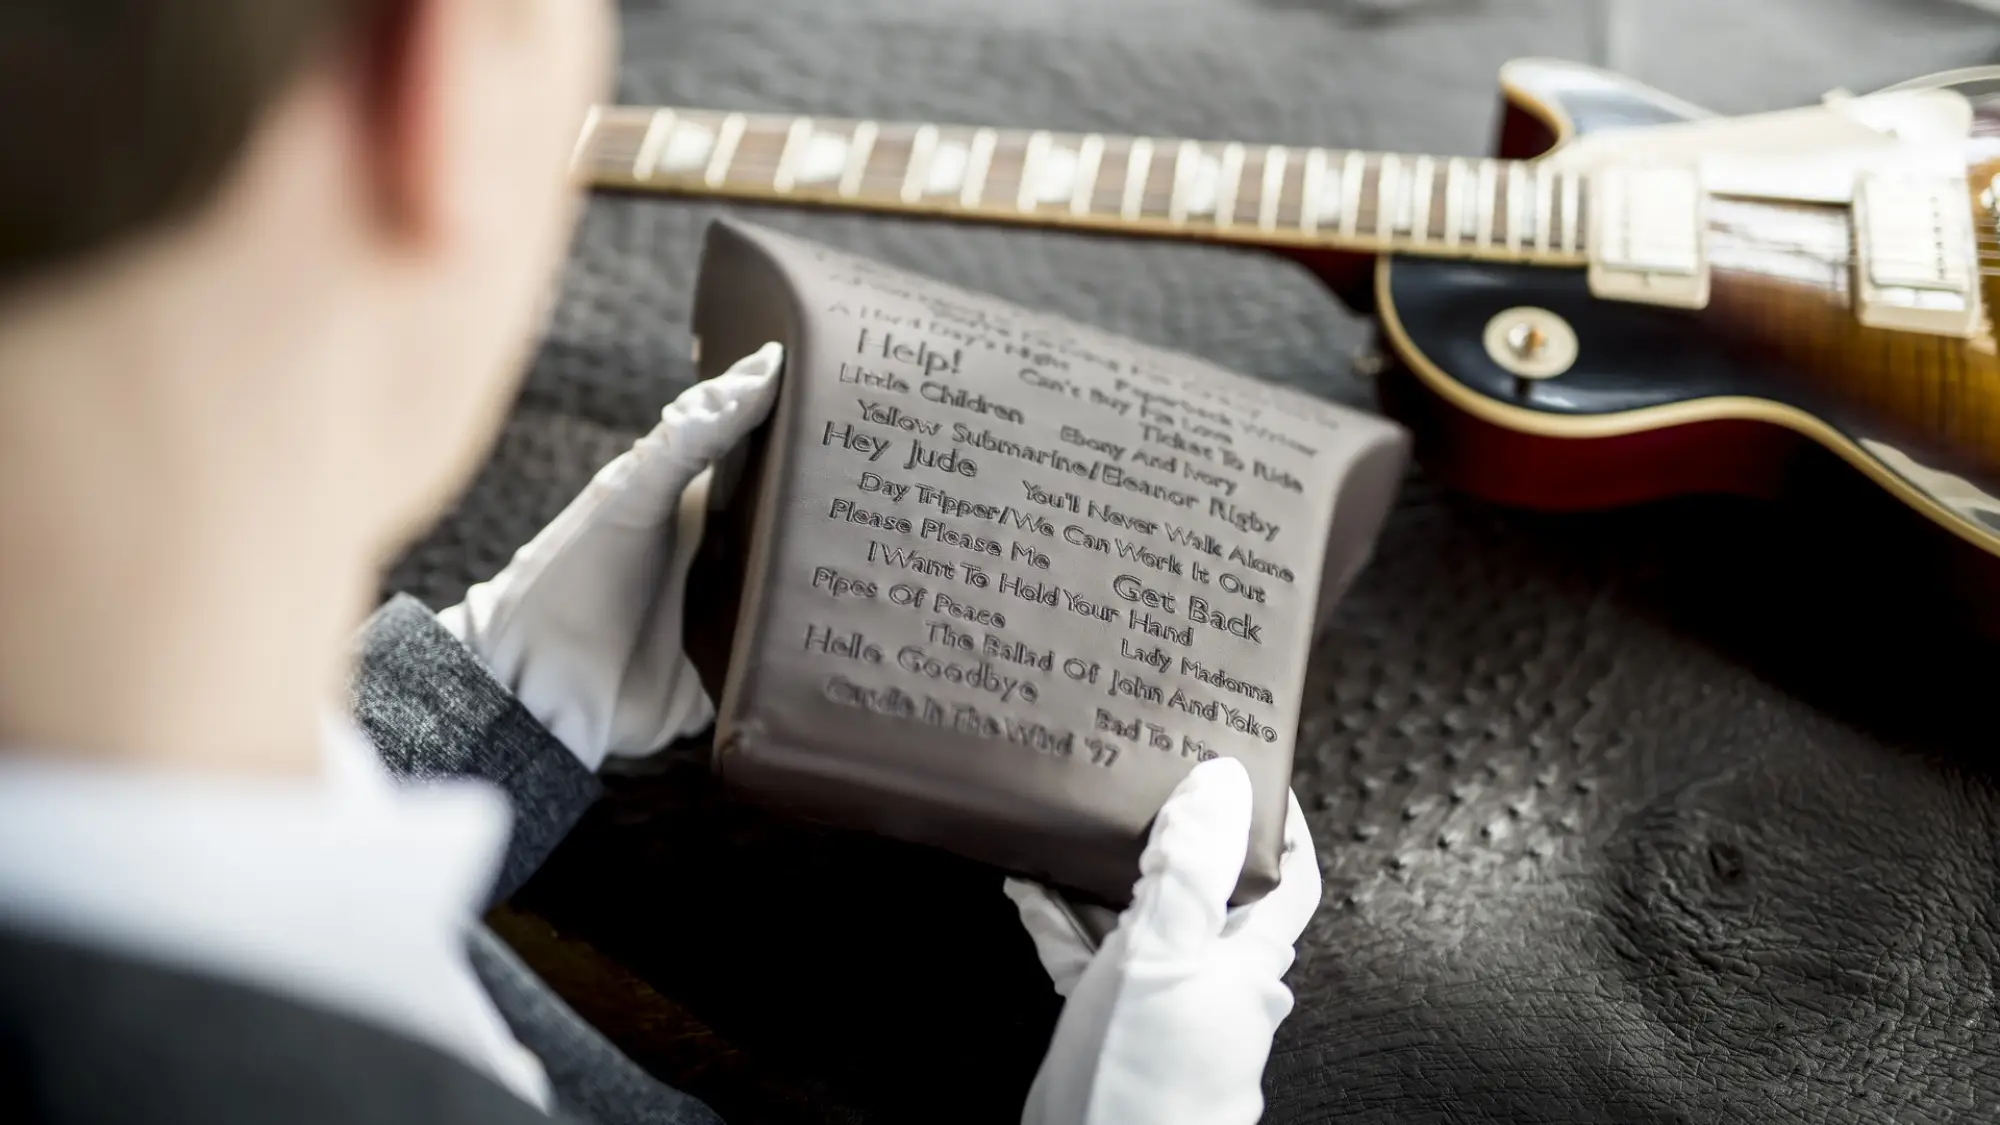 A Hard Day's Night Paperback Writer
Help! Can't Buy Me Love
Little Children Ticket To Ride
Yellow Submarine/Eleanor Rigby Ebony And Ivory
Hey Jude You'll Never Walk Alone
Day Tripper/We Can Work It Out
Please Please Me Get Back
I Want To Hold Your Hand
Pipes Of Peace Lady Madonna
The Ballad Of John And Yoko
Hello Goodbye Bad To Me
Candle In The Wind '97